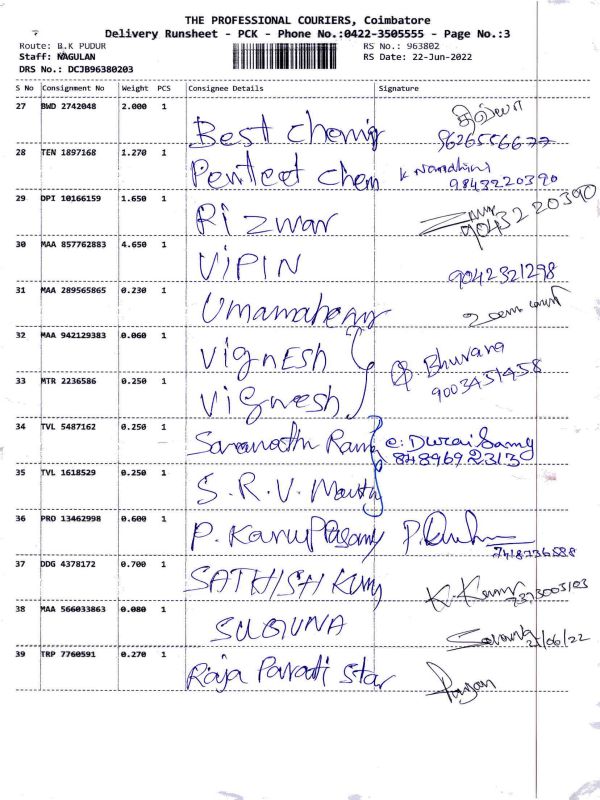 THE PROFESSIONAL COURIERS, Coimbatore
Delivery Runsheet - PCK - Phone No.:0422-3505555 - Page No.:3
Route: B.K PUDUR RS No.: 963802
Staff: NAGULAN RS Date: 22-Jun-2022
DRS No.: DCJB96380203
S No Consignment No Weight PCS Consignee Details Signature
27 BWD 2742048 2.000 1 Best
9626556677
28 TEN 1897168 1.270 1 Penteet chem
9843220390
29 DPI 10166159 1.650 1 Rizwar
9043220390
30 MAA 857762883 4.650 1 VIPIN
9042321298
31 MAA 289565865 0.230 1
32 MAA 942129383 0.060 1 VignEsh
Bhuvana
9003451458
33 MTR 2236586 0.250 1 Vignesh
34 TVL 5487162 0.250 1
e. DuraiSamy
8489692313
35 TVL 1618529 0.250 1 S.R.V.
36 PRO 13462998 0.600 1 P.
7418736588
37 DDG 4378172 0.700 1 SATHISH
K.
38 MAA 566033863 0.080 1 SUBIUNA
/06/22
39 TRP 7760591 0.270 1 Raja Star